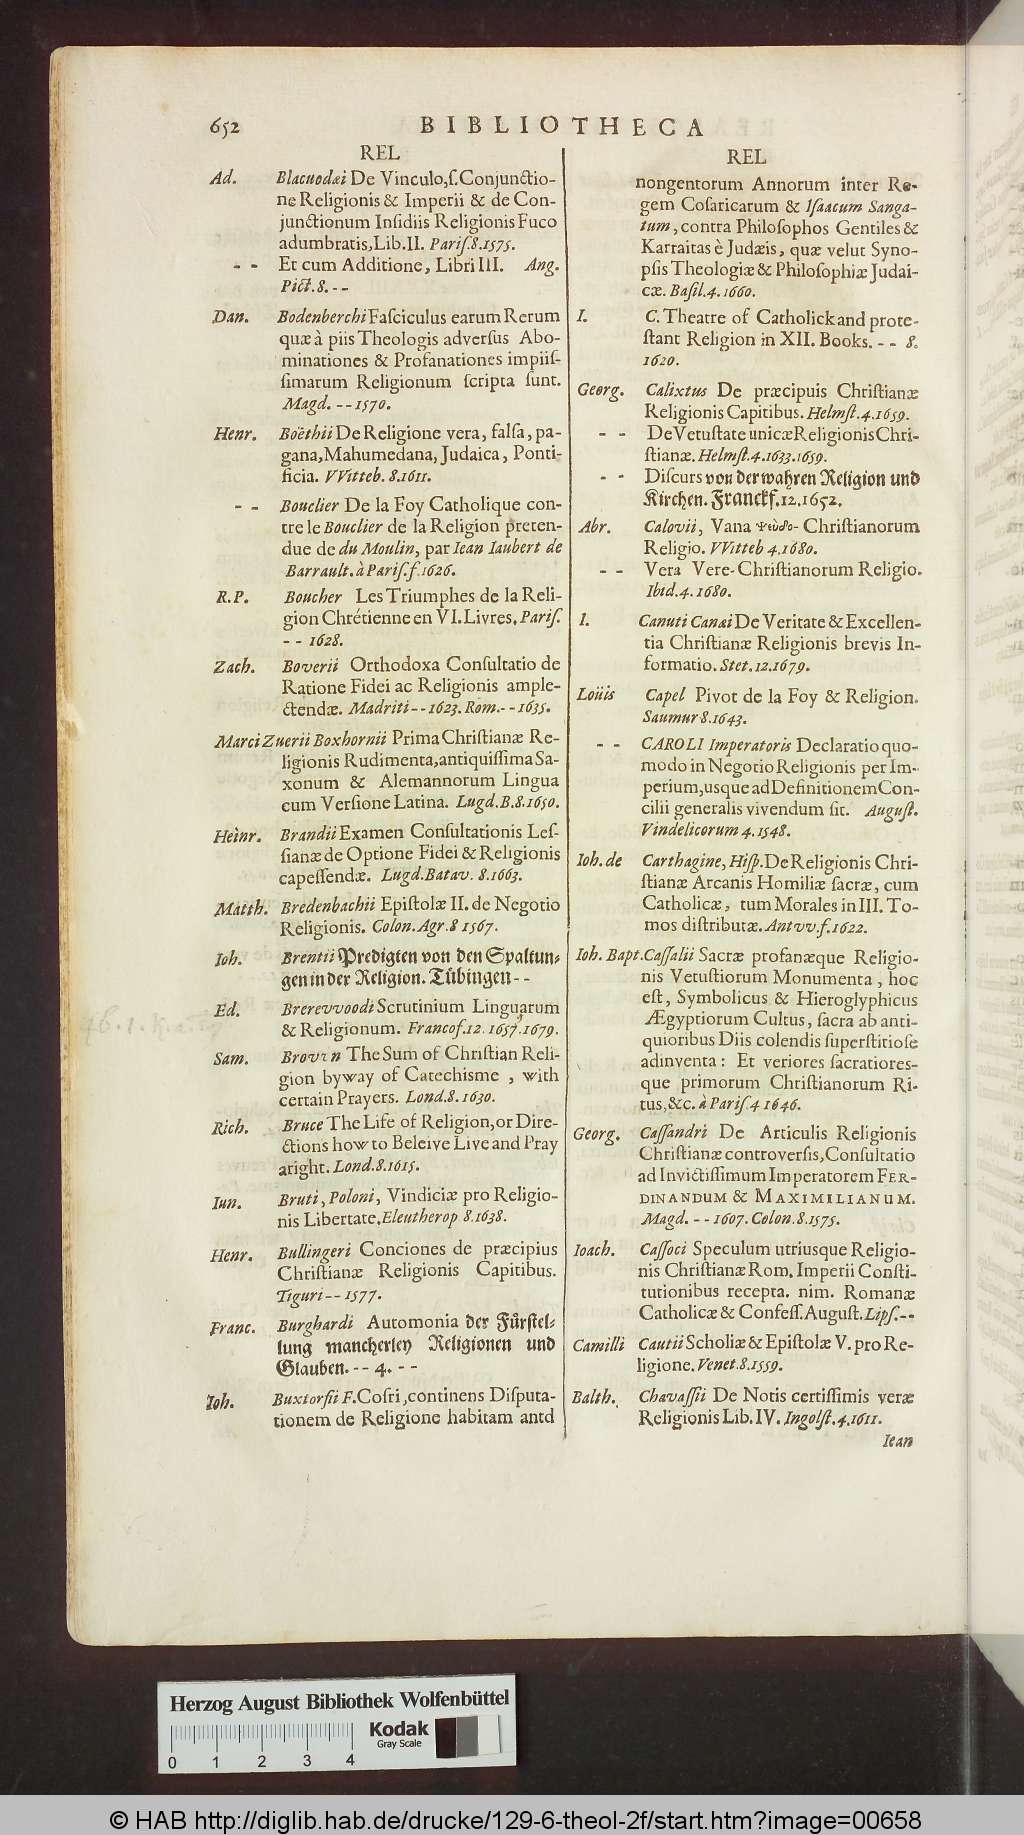 652 BIBLIOTHECA
REL
Ad. Blacuodæi De Vinculo, ſ. Conjunctio-
ne Religionis & Imperii & de Con-
junctionum Inſidiis Religionis Fuco
adumbratis, Lib. II. Pariſ. 8. 1575.
- - Et cum Additione, Libri III. Ang.
Pict. 8. - -
Dan. Bodenberchi Faſciculus earum Rerum
quæ à piis Theologis adverſus Abo-
minationes & Profanationes impiiſ-
ſimarum Religionum ſcripta ſunt.
Magd. - - 1570.
Henr. Boëthii De Religione vera, falſa, pa-
gana, Mahumedana, Judaica, Ponti-
ficia. VVitteb. 8. 1611.
- - Bouclier De la Foy Catholique con-
tre le Bouclier de la Religion preten-
due de du Moulin, par Iean Iaubert de
Barrault. à Pariſ. f. 1626.
R. P. Boucher Les Triumphes de la Reli-
gion Chrétienne en VI. Livres. Pariſ.
- - 1628.
Zach. Boverii Orthodoxa Conſultatio de
Ratione Fidei ac Religionis ample-
ctendæ. Madriti - - 1623. Rom. - - 1635.
Marci Zuerii Boxhornii Prima Chriſtianæ Re-
ligionis Rudimenta, antiquiſſima Sa-
xonum & Alemannorum Lingua
cum Verſione Latina. Lugd. B. 8. 1650.
Heinr. Brandii Examen Conſultationis Leſ-
ſianæ de Optione Fidei & Religionis
capeſſendæ. Lugd. Batav. 8. 1663.
Matth. Bredenbachii Epiſtolæ II. de Negotio
Religionis. Colon. Agr. 8 1567.
Ioh. Brentii Predigten von den Spaltun-
gen in der Religion. Tübingen - -
Ed. Brerevvoodi Scrutinium Linguarum
& Religionum. Francof. 12. 1657. 1679.
Sam. Brovvn The Sum of Chriſtian Reli-
gion byway of Catechisme, with
certain Prayers. Lond. 8. 1630.
Rich. Bruce The Life of Religion, or Dire-
ctions how to Beleive Live and Pray
aright. Lond. 8. 1615.
Iun. Bruti, Poloni, Vindiciæ pro Religio-
nis Libertate. Eleutherop 8. 1638.
Henr. Bullingeri Conciones de præcipius
Chriſtianæ Religionis Capitibus.
Tiguri - - 1577.
Franc. Burghardi Automonia der Fürſtel-
lung mancherley Religionen und
Glauben. - - 4. - -
Ioh. Buxtorfii F. Coſri, continens Diſputa-
tionem de Religione habitam antd
REL
nongentorum Annorum inter Re-
gem Coſaricarum & Iſaacum Sanga-
tum, contra Philoſophos Gentiles &
Karraitas è Judæis, quæ velut Syno-
pſis Theologiæ & Philoſophiæ Judai-
cæ. Baſil. 4. 1660.
I. C. Theatre of Catholick and prote-
ſtant Religion in XII. Books. - - 8.
1620.
Georg. Calixtus De præcipuis Chriſtianæ
Religionis Capitibus. Helmſt. 4. 1659.
- - De Vetuſtate unicæ Religionis Chri-
ſtianæ. Helmſt. 4. 1633. 1659.
- - Diſcurs von der wahren Religion und
Kirchen. Franckf. 12. 1652.
Abr. Calovii, Vana Ψευδο- Chriſtianorum
Religio. VVitteb 4. 1680.
- - Vera Vere-Chriſtianorum Religio.
Ibid. 4. 1680.
I. Canuti Canai De Veritate & Excellen-
tia Chriſtianæ Religionis brevis In-
formatio. Stet. 12. 1679.
Loüis Capel Pivot de la Foy & Religion.
Saumur 8. 1643.
- - CAROLI Imperatoris Declaratio quo-
modo in Negotio Religionis per Im-
perium, usque ad Definitionem Con-
cilii generalis vivendum ſit. Auguſt.
Vindelicorum 4. 1548.
Ioh. de Carthagine, Hiſp. De Religionis Chri-
ſtianæ Arcanis Homiliæ ſacræ, cum
Catholicæ, tum Morales in III. To-
mos diſtributæ. Antvv. f. 1622.
Ioh. Bapt. Caſſalii Sacræ profanæque Religio-
nis Vetuſtiorum Monumenta, hoc
eſt, Symbolicus & Hieroglyphicus
Ægyptiorum Cultus, ſacra ab anti-
quioribus Diis colendis ſuperſtitioſe
adinventa: Et veriores ſacratiores-
que primorum Chriſtianorum Ri-
tus, &c. à Pariſ. 4 1646.
Georg. Caſſandri De Articulis Religionis
Chriſtianæ controverſis, Conſultatio
ad Invictiſſimum Imperatorem FER-
DINANDUM & MAXIMILIANUM.
Magd. - - 1607. Colon. 8. 1575.
Ioach. Caſſoci Speculum utriusque Religio-
nis Chriſtianæ Rom. Imperii Conſti-
tutionibus recepta. nim. Romanæ
Catholicæ & Confeſſ. Auguſt. Lipſ. - -
Camilli Cautii Scholiæ & Epiſtolæ V. pro Re-
ligione. Venet. 8. 1559.
Balth. Chavaſſii De Notis certiſſimis veræ
Religionis Lib. IV. Ingolſt. 4. 1611.
Iean
Herzog August Bibliothek Wolfenbüttel
Kodak
Gray Scale
0 1 2 3 4
© HAB http://diglib.hab.de/drucke/129-6-theol-2f/start.htm?image=00658